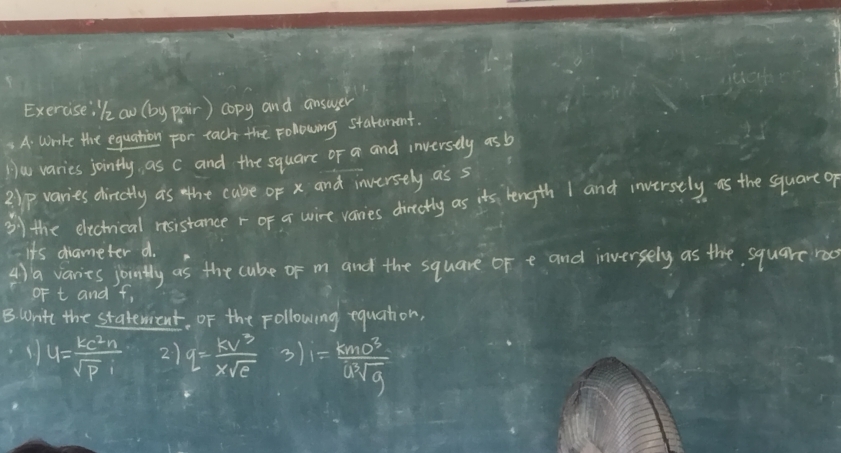 Exercise: 1/2 cw (by pair) copy and answer
A. Write the equation for each the following statement.
1) w varies jointly as c and the square of a and inversely as b
2) p varies directly as the cube of x and inversely as s
3.) the electrical resistance r of a wire varies directly as its length l and inversely as the square of
its diameter d.
4) a varies jointly as the cube of m and the square of e and inversely as the square roo
of t and f,
B. Write the statement of the following equation,
1) y = kc²n / √p i 2) q = kv³ / x√e 3) i = kmo³ / u³√g